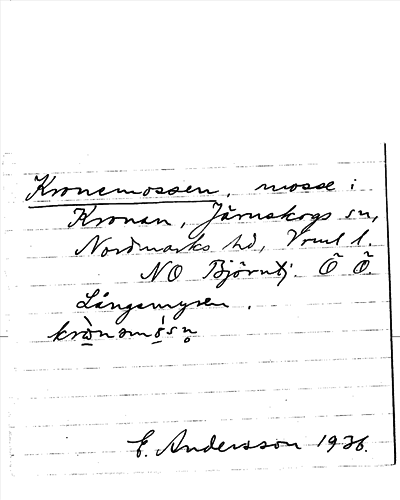 Kronemossen, mosse i
Kronan, Järnskogs sn,
Nordmarks hd, Vrml l.
NO Björntj. Ö Ö
Långemyren.
krònəmósn̥
E. Andersson 1936.